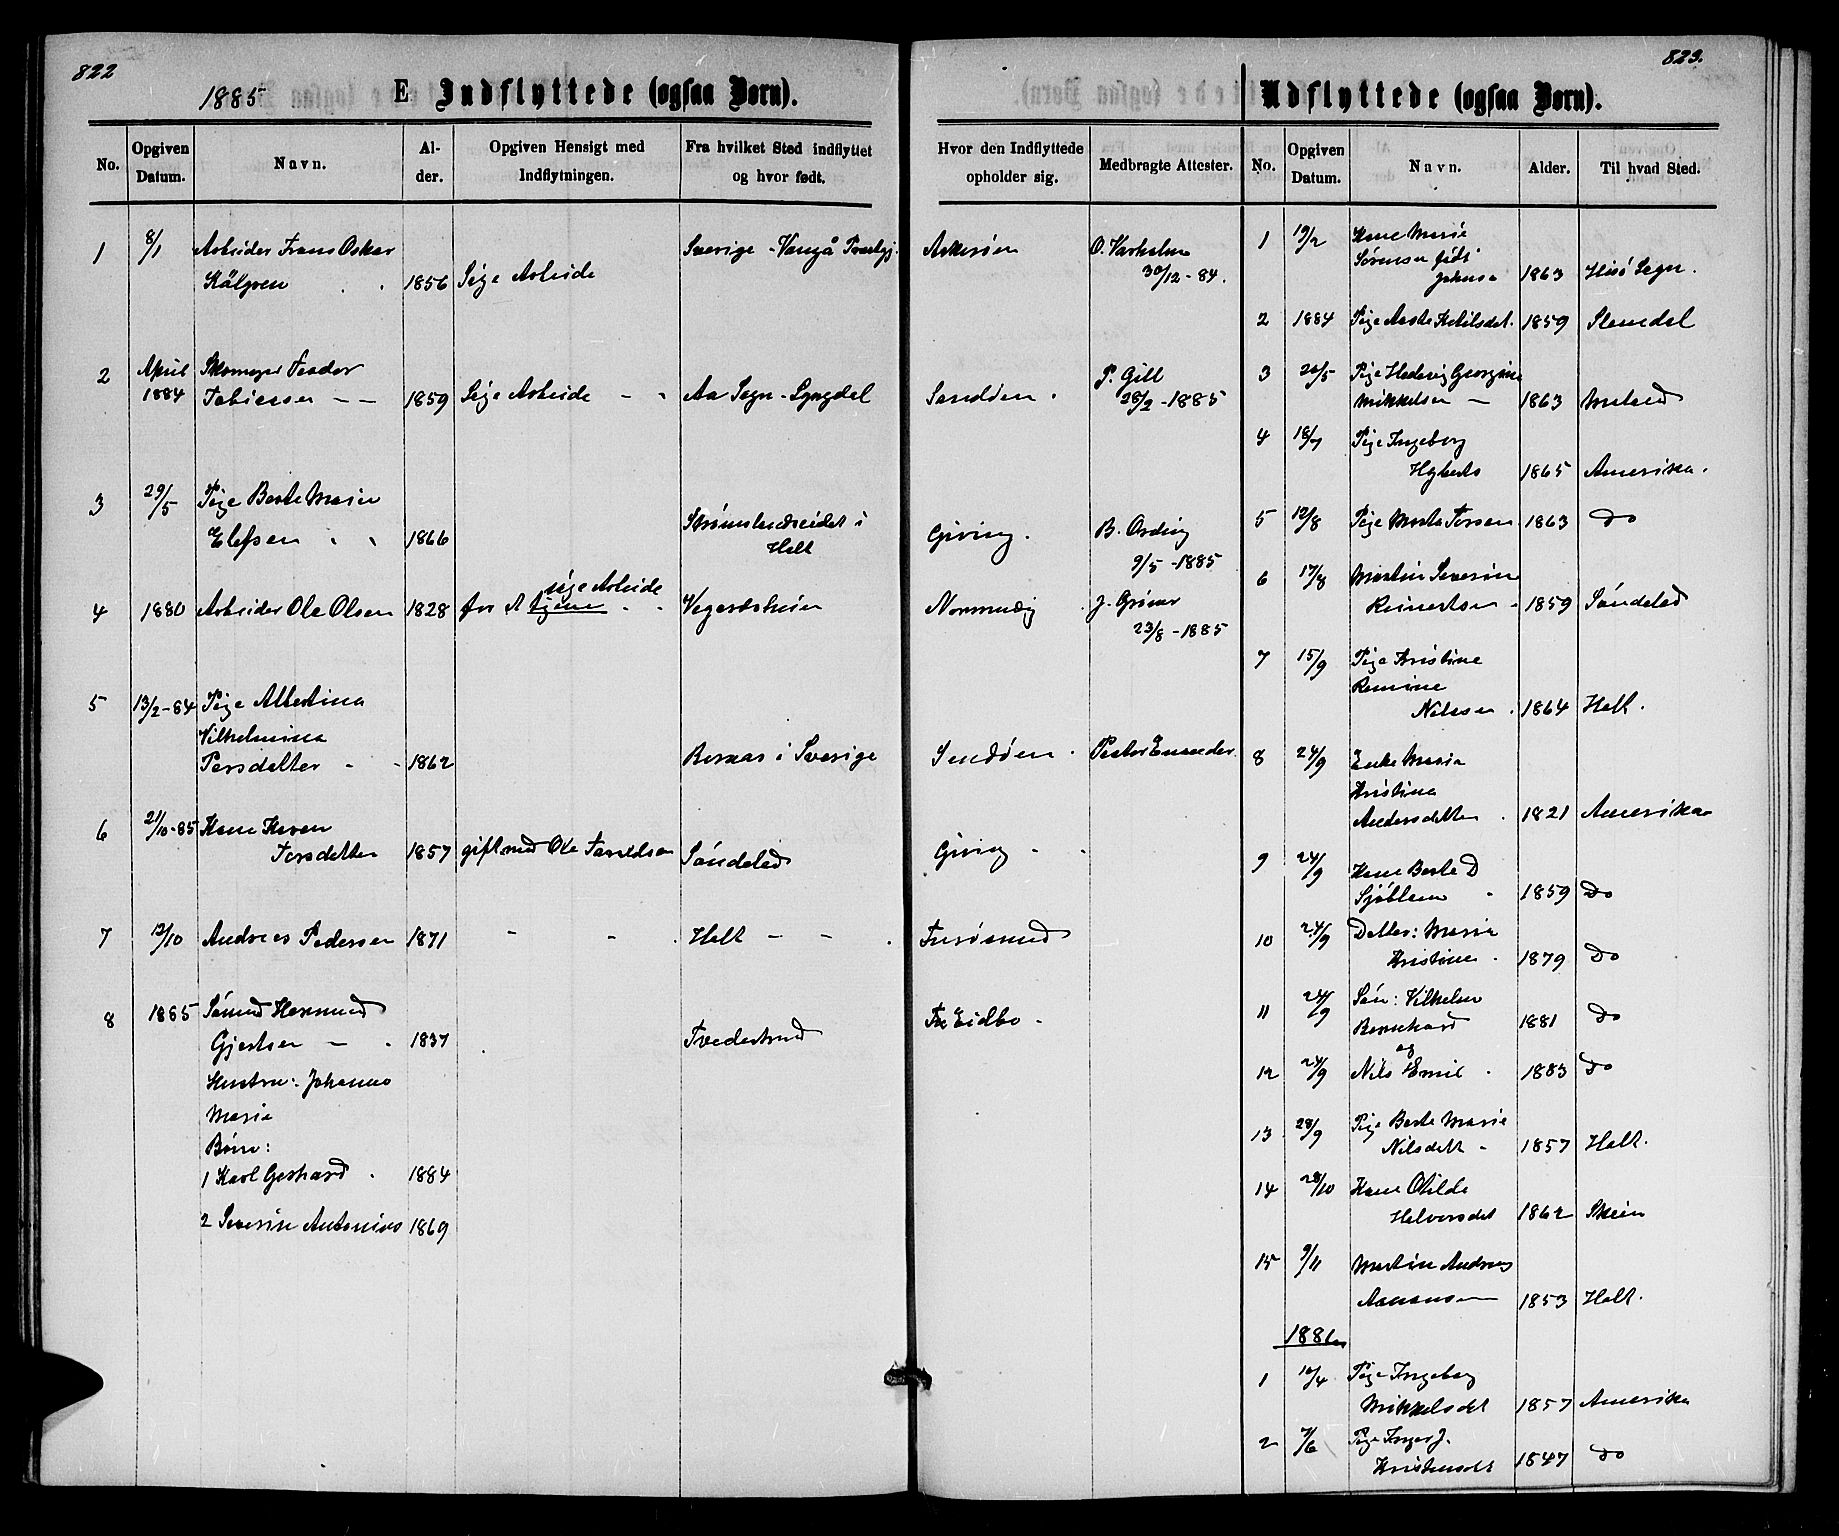 822
1885 E Indflyttede (ogsaa Børn).
No. Opgiven Datum. Navn. Alder. Opgiven Hensigt med Indflytningen. Fra hvilket Sted indflyttet og hvor født. Hvor den Indflyttede opholder sig. Medbragte Attester.
1 8/1 Arbeider Frans Oskar Sverige - Askerøen O. Varholm
1856 Søge Arbeide 30/12 - 84.
2 April Skomager
1884 Tobiassen - - 1859 Søge Arbeide - Aa Sogn - Lyngdal Sandøen. P. Gill
28/2 - 1885
3 29/5 Pige Berte Marie
Elefsen 1866 i Holt Giving. B. Ording
9/5 - 1885
søge Arbeide
4 1880 Arbeider Ole Olsen 1828 for at tjene Vegardsheien J.
23/8 - 1885
5 13/2 - 84 Pige Albertina
Vilhelmina
Persdatter - - 1862 i Sverige Sandøen. Pastor
6 21/10 - 85 Kone Karen
Torsdatter 1857 gift med Ole Søndeled Giving - -
7 12/10 Andreas Pedersen 1871 - - Holt - -
8 1885 Sømand
Gjertsen - 1837 Tvedestrand Eidbo -
Hustru: Johanne
Marie
Børn:
1 Karl Gerhard 1884
2 Severin Antonius 1869
823.
Udflyttede (ogsaa Børn).
No. Opgiven Datum. Navn. Alder. Til hvad Sted.
1 19/2 Kone Marie
Sørensen født
1863 Hisø Sogn.
2 1884 Pige Aaste Ketilsdet. 1859
3 20/5 Pige Hedevig Georgine
Mikkelsen - 1863
4 18/7 Pige Ingeborg
1865 Amerika.
5 12/8 Pige 1863 Do
6 17/8 Martin Severin
Reinertsen - 1859 Søndeled
7 15/9 Pige Kristine
Nilssen. 1864 Holt.
8 24/9 Enke Maria
Kristina
Andersdatter. 1821 Amerika
9 24/9 Kone Berte D
Sjøblom 1859 Do
10 24/9 Datter: Maria
Kristine. 1879 Do
11 24/9 Søn: Vilhelm
Bernhard 1881 Do
og
12 24/9 Nils Emil. 1883 Do
13 28/9 Pige Berte Marie
Nilsdett - 1857 Holt.
14 28/10 Kone Otilde
Halvorsdet 1862 Skien
15 9/11 Martin Andreas
Aanonsen 1853 Holt.
1886
1 10/4 Pige Ingeborg
Mikkelsdet 1857 Amerika
2 7/6 Pige Inger J.
Kristensdet 1847 Do